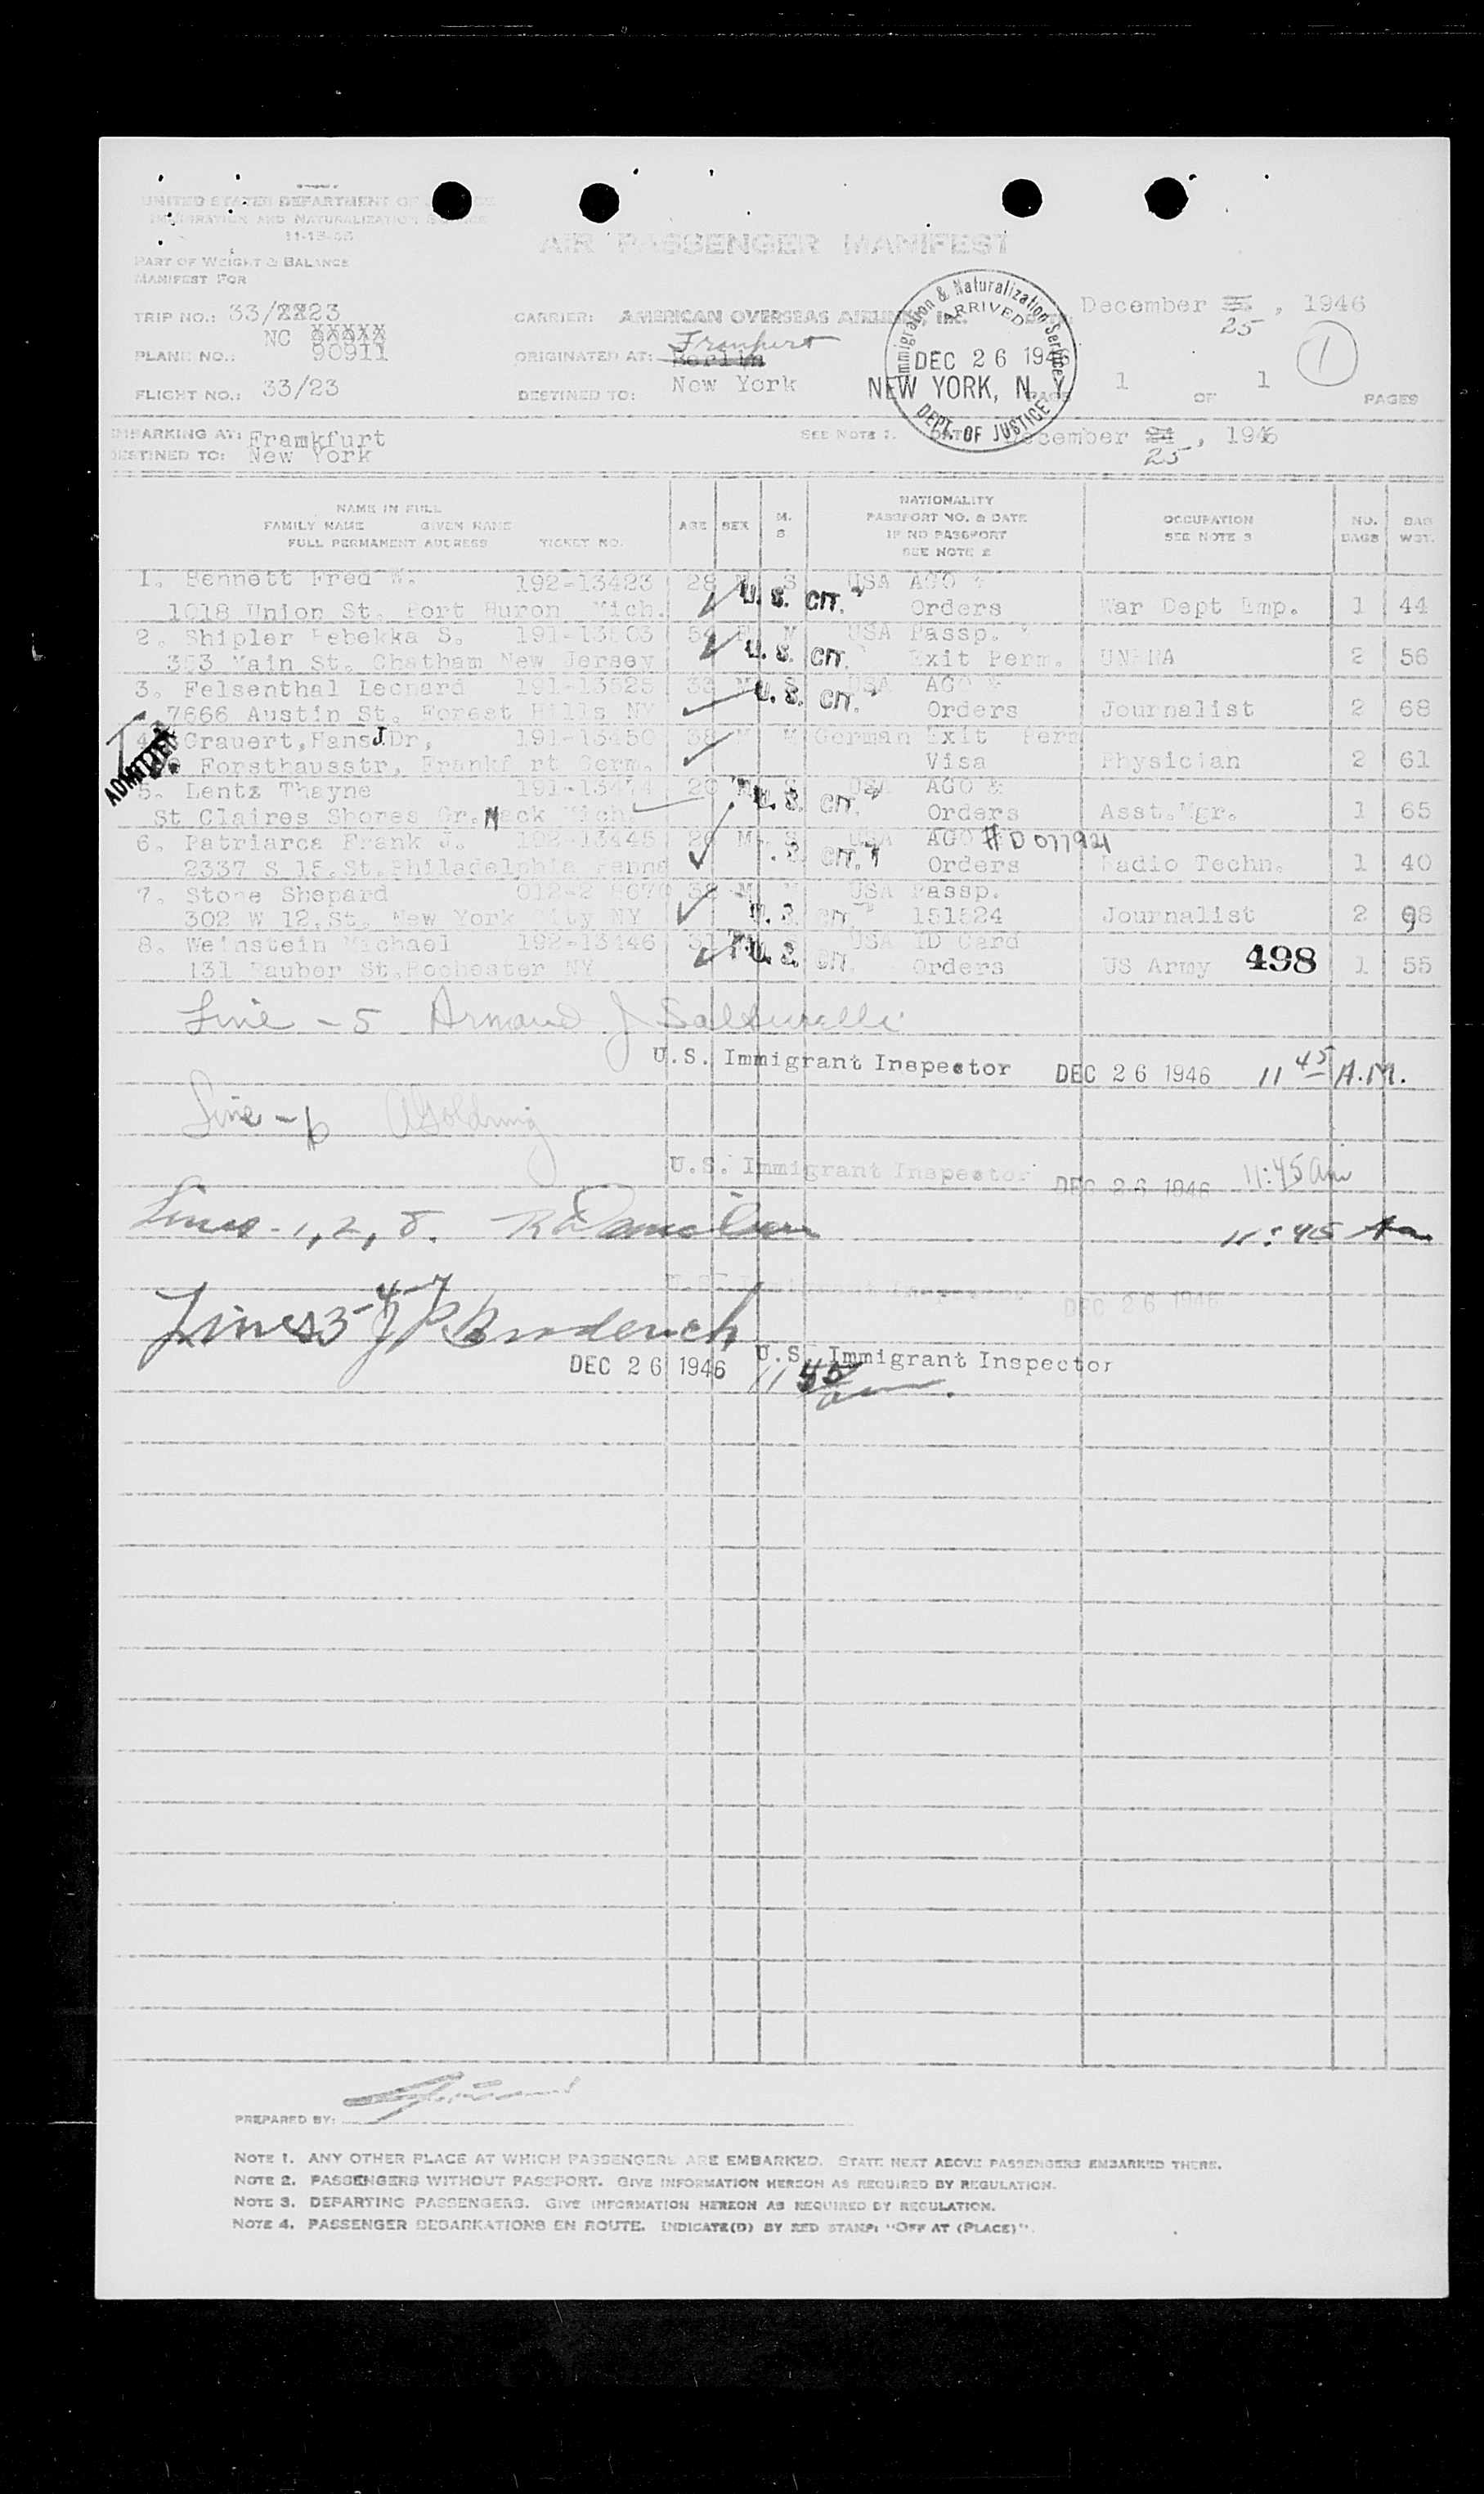 UNITED STATES DEPARTMENT OF
IMMIGRATION AND NATURALIZATION
11-15-45
AIR PASSENGER MANIFEST
PART OF WEIGHT & BALANCE
MANIFEST FOR
TRIP NO.: 33/2223
CARRIER: AMERICAN OVERSEAS AIRLINES, INC.
December 25, 1946
NC
PLANE NO.: 90911
ORIGINATED AT: Berlin Frankfurt
1
FLIGHT NO.: 33/23
DESTINED TO: New York
PAGE 1 OF 1 PAGES
Immigration & Naturalization Service
ARRIVED
DEC 26 1946
NEW YORK, N.Y.
DEPT. OF JUSTICE
EMBARKING AT: Framkfurt
SEE NOTE 1. DATE December 25, 1946
DESTINED TO: New York
NAME IN FULL
FAMILY NAME GIVEN NAME
FULL PERMANENT ADDRESS TICKET NO.
AGE SEX M. S
NATIONALITY
PASSPORT NO. & DATE
IF NO PASSPORT
SEE NOTE 2
OCCUPATION
SEE NOTE 3
NO. BAGS
BAG WGT.
1. Bennett Fred W. 192-13423 28 M S USA AGO
1018 Union St. Port Huron Mich. U.S. CIT. Orders War Dept Emp. 1 44
2. Shipler Rebekka S. M USA Passp.
Main St. Chatham New Jersey U.S. CIT. Exit Perm. UNRRA 2 56
3. Felsenthal Leonard 191-13525 33 M S USA AGO
7666 Austin St. Forest Hills NY U.S. CIT. Orders Journalist 2 68
4. Grauert, Hans J Dr, 191-13450 38 M M German Exit Perm
ADMITTED Forsthausstr, Frankfurt Germ. Visa Physician 2 61
5. Lentz Thayne 191-13474 26 M S USA AGO
St Claires Shores Gr. Mack Mich. U.S. CIT. Orders Asst. Mgr. 1 65
6. Patriarca Frank J. 192-13445 26 M S USA AGO #D077921
2337 S 15. St. Philadelphia Penna CIT. Orders Radio Techn. 1 40
7. Stone Shepard 38 M M USA Passp.
302 W 12. St. New York City NY U.S. CIT. 151524 Journalist 2 98
8. Weinstein Michael 192-13446 31 USA ID Card
131 Rauber St. Rochester NY U.S. CIT. Orders US Army 498 1 55
Line - 5 Armand J
U.S. Immigrant Inspector DEC 26 1946 11 45 A.M.
Line - 6 A Goldring
U.S. Immigrant Inspector DEC 26 1946 11:45 am
Lines - 1, 2, 8. 11:45 Am
DEC 26 1946
Lines 3-4-7 J P Broderick
DEC 26 1946 U.S. Immigrant Inspector
11 45 am.
PREPARED BY:
NOTE 1. ANY OTHER PLACE AT WHICH PASSENGERS ARE EMBARKED. STATE NEXT ABOVE PASSENGERS EMBARKED THERE.
NOTE 2. PASSENGERS WITHOUT PASSPORT. GIVE INFORMATION HEREON AS REQUIRED BY REGULATION.
NOTE 3. DEPARTING PASSENGERS. GIVE INFORMATION HEREON AS REQUIRED BY REGULATION.
NOTE 4. PASSENGER DEBARKATIONS EN ROUTE. INDICATE(D) BY RED STAMP: "OFF AT (PLACE)".